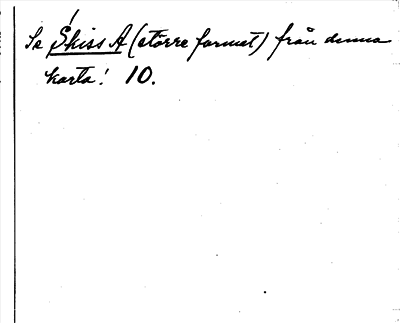 Se Skiss A (större format) från denna
karta! 10.